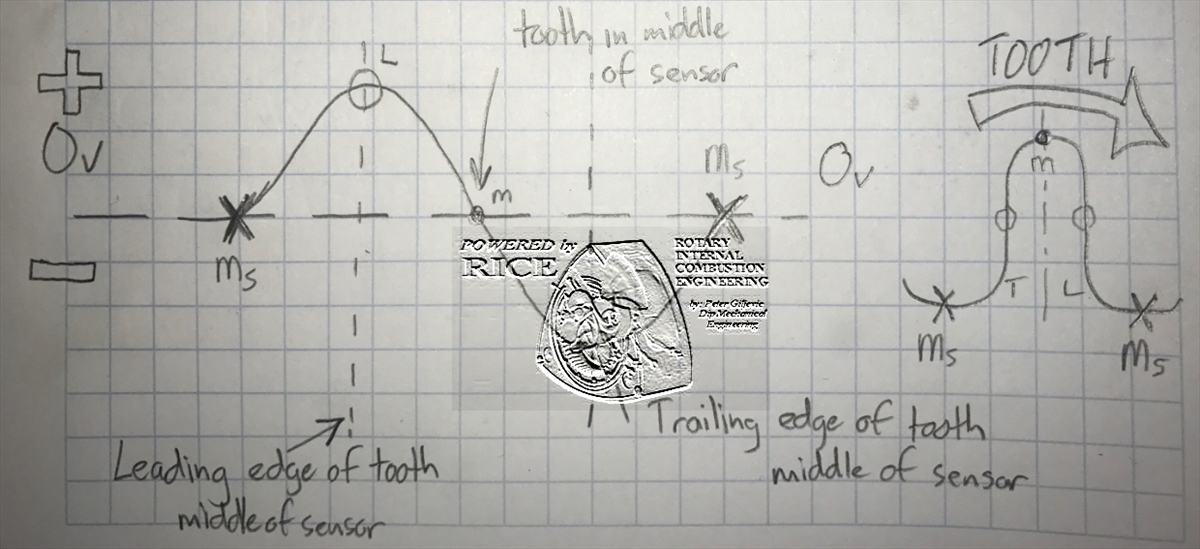 +
L
tooth in middle
of sensor
TOOTH
Ov
m
Ms
Ov
m
Ms
POWERED by
RICE
ROTARY
INTERNAL
COMBUSTION
ENGINEERING
by: Peter Giljevic
Dip.Mechanical
Engineering
T
L
Ms
Ms
Leading edge of tooth
middle of sensor
Trailing edge of tooth
middle of sensor